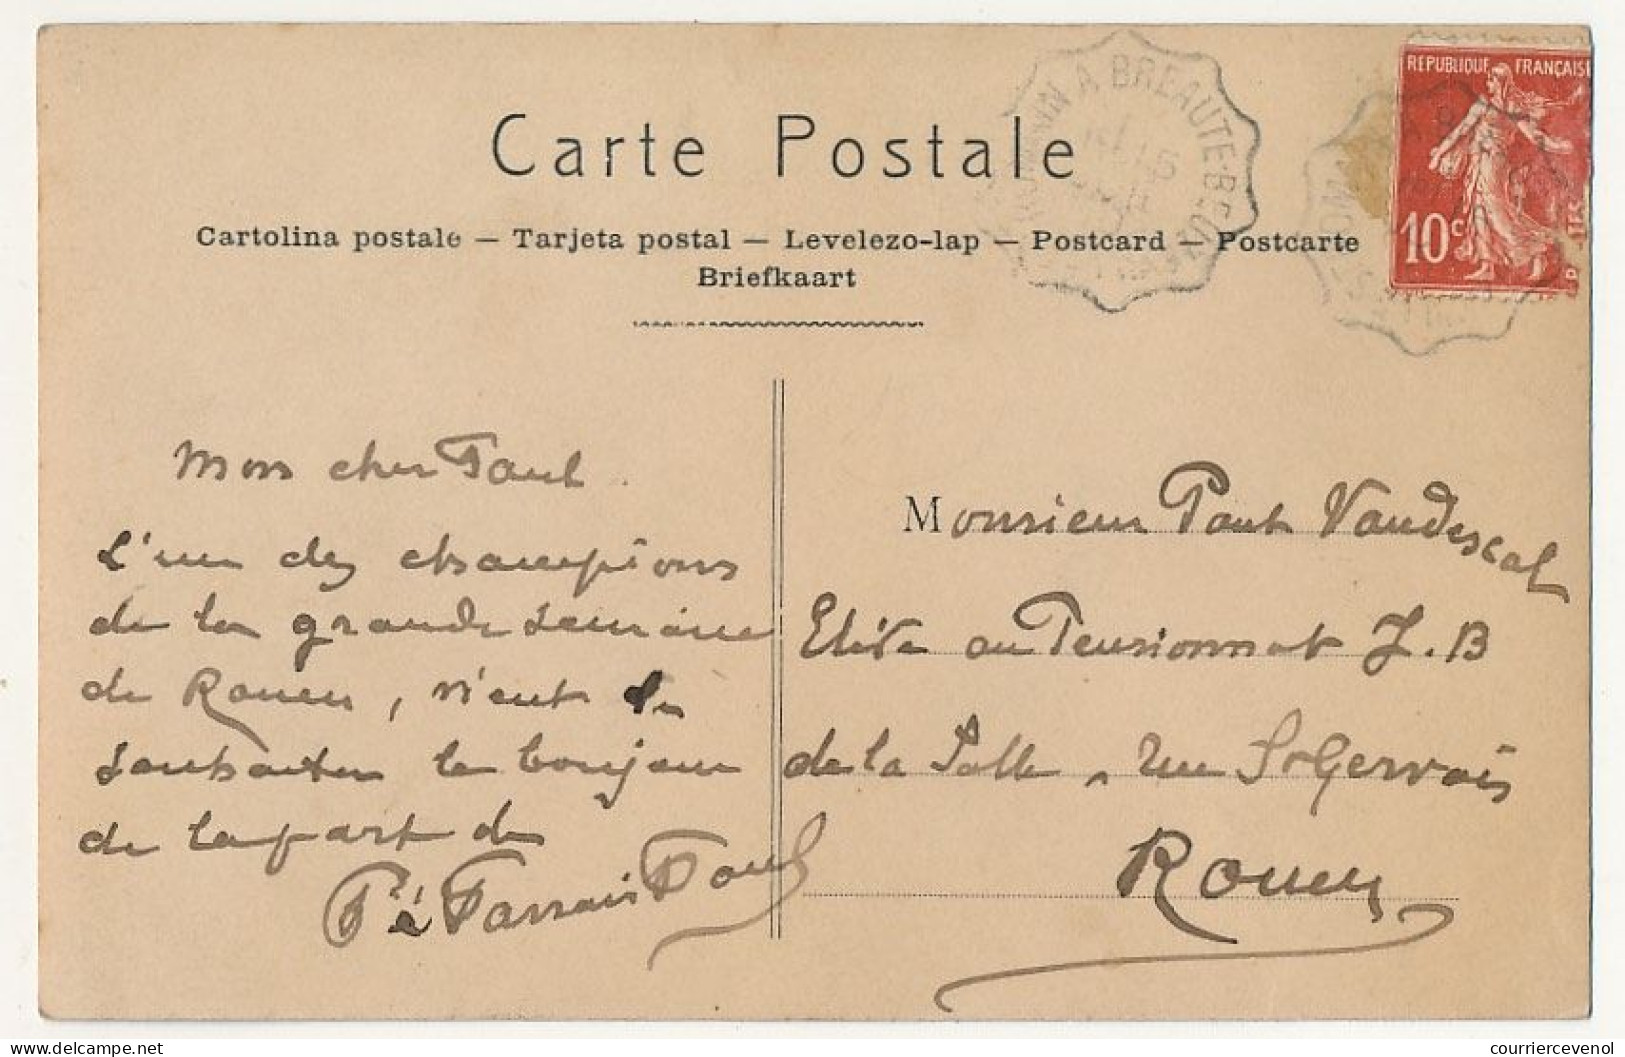 Carte Postale
Cartolina postale – Tarjeta postal – Levelezo-lap – Postcard – Postcarte
Briefkaart
A BREAUTE-BEUZ
REPUBLIQUE FRANÇAISE
10c
Mon cher Paul.
L'un des champions
de la grande semaine
de Rouen, vient te
souhaiter le bonjour
de la part de
Paul
Monsieur Paul Vandescal
Elève au Pensionnat J.B
de la Salle, rue St Gervais
Rouen
delcampe.net
couriercevenol